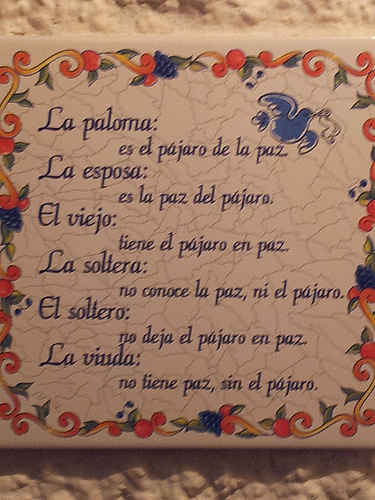 La paloma:
es el pájaro de la paz.
La esposa:
es la paz del pájaro.
El viejo:
tiene el pájaro en paz.
La soltera:
no conoce la paz, ni el pájaro.
El soltero:
no deja el pájaro en paz.
La viuda:
no tiene paz, sin el pájaro.